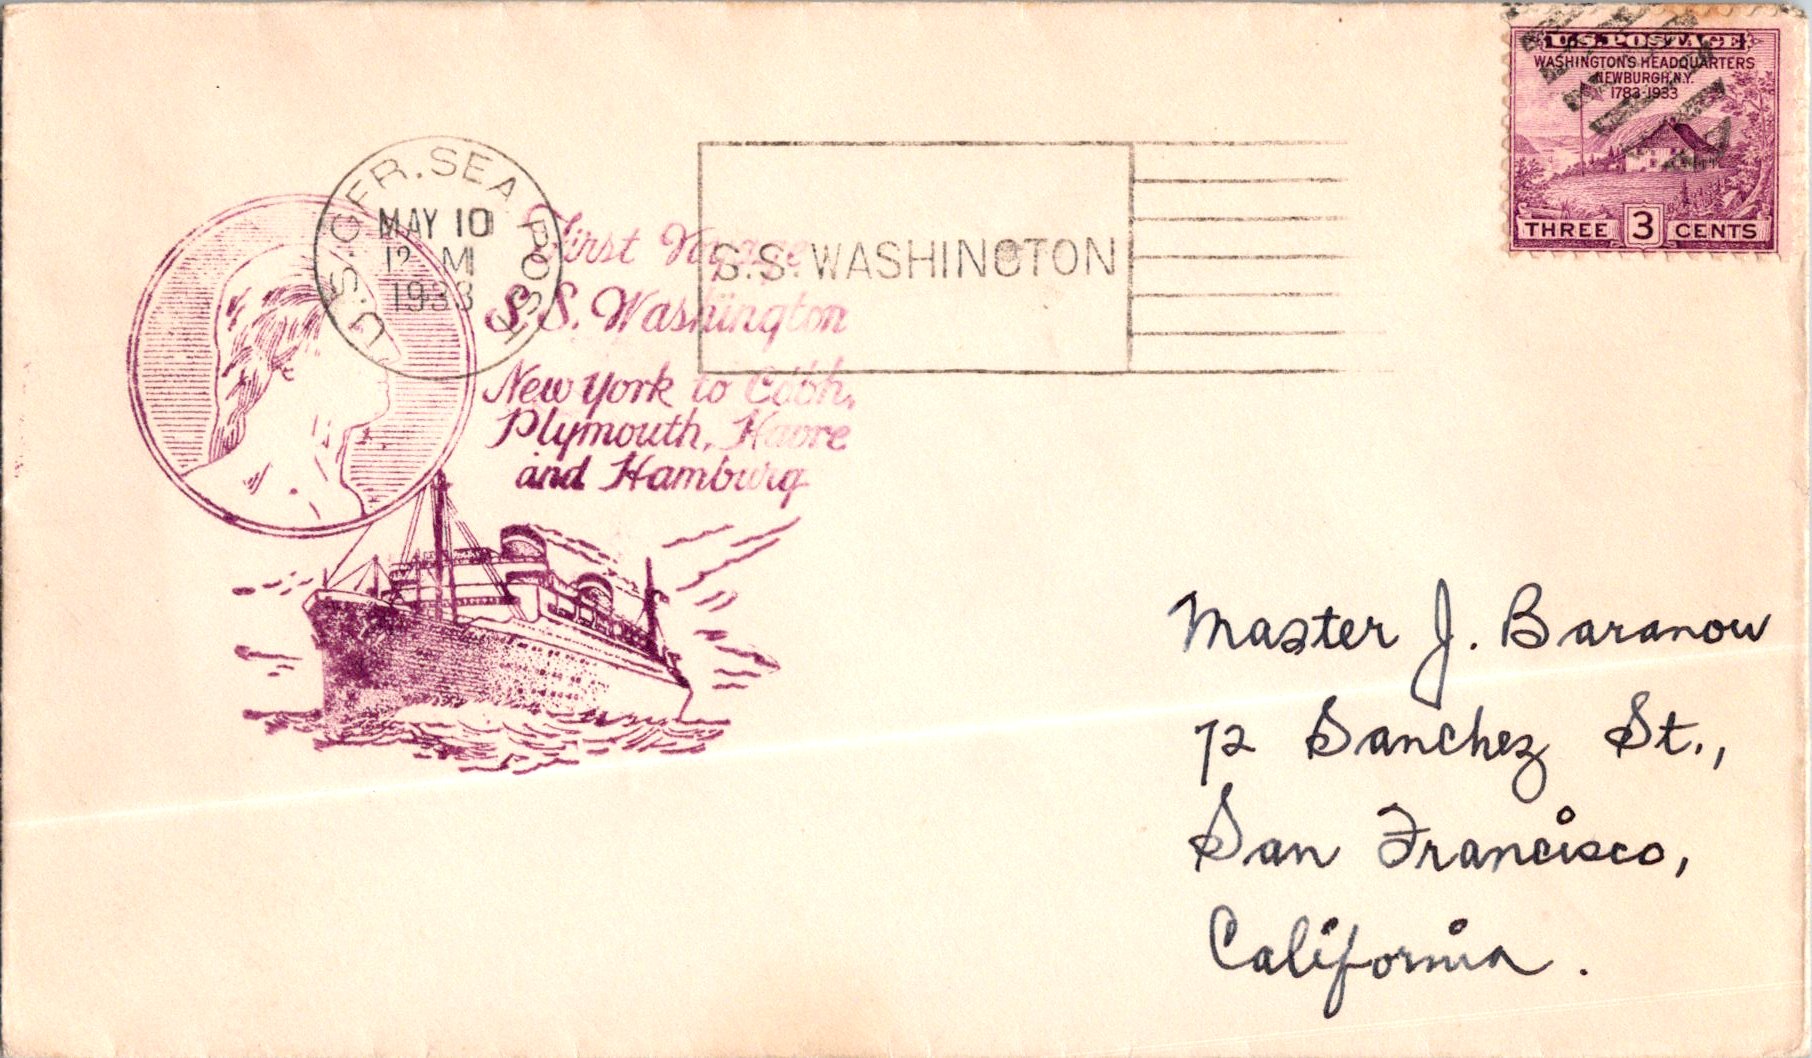 U.S. POSTAGE
WASHINGTON'S HEADQUARTERS
NEWBURGH, N.Y.
1783-1933
THREE 3 CENTS
U.S. GER. SEA POST
MAY 10
12 M
1933
S.S. WASHINGTON
First Voyage
S.S. Washington
New York to Cobh,
Plymouth, Havre
and Hamburg
Master J. Baranow
72 Sanchez St.,
San Francisco,
California.